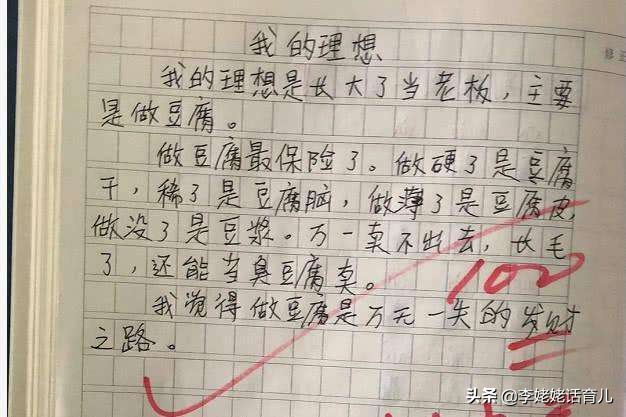 我的理想
我的理想是长大了当老板，主要
是做豆腐。
做豆腐最保险了。做硬了是豆腐
干，稀了是豆腐脑，做薄了是豆腐皮，
做没了是豆浆。万一卖不出去，长毛
了，还能当臭豆腐卖。
我觉得做豆腐是万无一失的发财
之路。
100
头条 @李姥姥话育儿